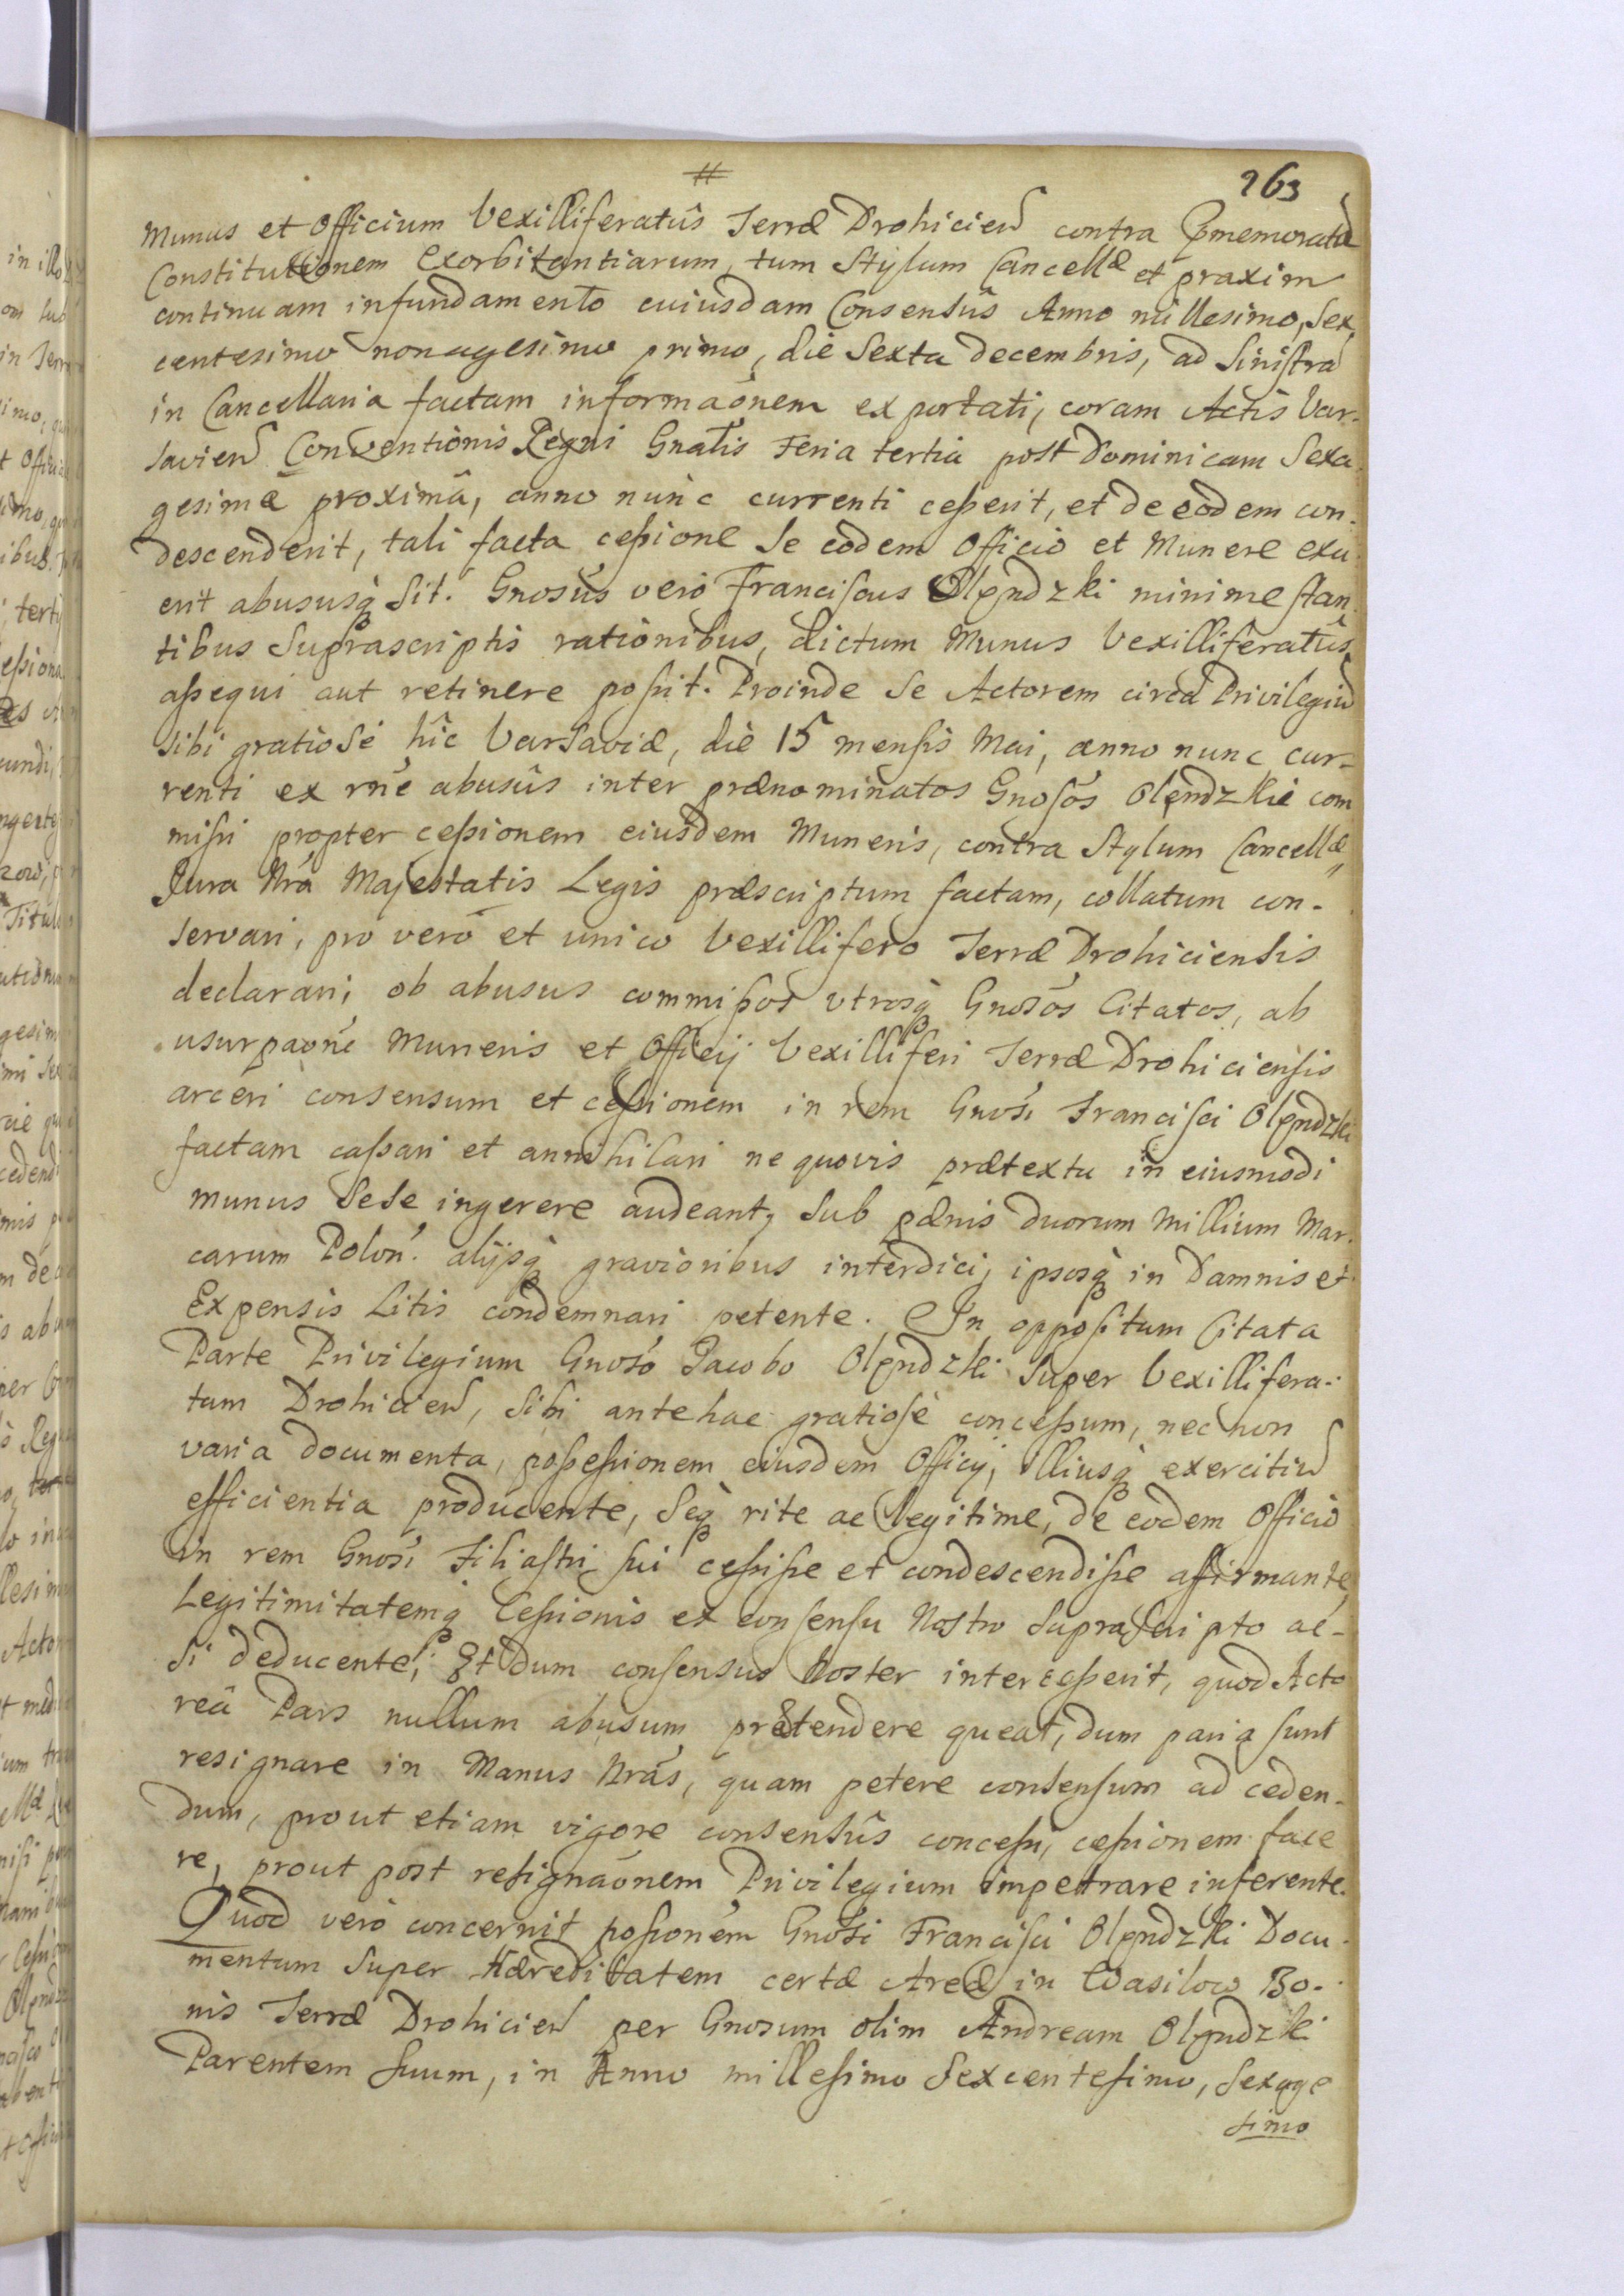 #
263
Munus et Officium Vexilliferatûs Terræ Drohicień contra Com̃emoratã
Constitutionem Exorbitantiarum, tum Stylum Cancellæ et praxim
continuam infundamento cuiusdam Consensûs Anno millesimo, Sex
centesimo nonagesimo primo, die Sexta decembris, ad Sinistrã
in Cancellaria factam informãonem exportati, coram Actis Var-
savień Conventionis Regni Gnãlis Feria tertia post Dominicam Sexa
gesimæ proximâ, anno nunc currenti ceßerit, et de eodem con-
descenderit, tali facta ceßione Se eodem Officio et Munere exu
erit abususq̀ Sit. Gnosus verò Franciscus Olędzki minime stan
tibus Suprascriptis rationibus, dictum Munus Vexilliferatûs
aßequi aut retinere poßit. Proinde Se Actorem circa Privilegiũ
sibi gratiosè hîc Varsaviæ, die 15 mensis Mai, anno nunc cur-
renti ex rñe abusûs inter prænominatos Gnosós Olędzkie com
mißi propter ceßionem eiusdem Muneris, contra Stylum Cancellæ,
Jura Nrá Majestatis Legis præscriptum factam, collatum con-
servari, pro vero et unico Vexillifero Terræ Drohiciensis
declarari, ob abusus commißos utrosq̀ Gnosós Citatos, ab
usurpaõne Muneris et Officij Vexilliferi Terræ Drohiciensis
arceri consensum et ceßionem in rem Gnosi Francisci Olędzki
factam caßari et annihilari ne quovis prætextu in eiusmodi
munus Sese ingerere audeant, Sub pænis duorum Millium Mar-
carum Poloń. alijsq̀ gravioribus interdici, ipsosq̀ in Damnis et
Expensis Litis condemnari petente. In oppositum Citata
Parte Privilegium Gnosó Jacobo Olędzki Super Vexillifera-
tum Drohicień, Sibi antehac gratiosè conceßum, nec non
varia documenta, poßeßionem eiusdem Officij, illiusq̀ exercitiũ
efficientia producente, Seq̀ rite ac legitime, de eodem Officio
in rem Gnosi Filiastri sui ceßiße et condescendiße affirmante,
Legitimitatemq̀ Ceßionis ex consensu Nostro Suprascripto ac-
si deducente; Et dum consensus Noster interceßerit, quod Acto
rea Pars nullum abusum prætendere queat, dum paria sunt
resignare in Manus Nrás, quam petere consensum ad ceden-
dum, prout etiam vigore consensûs conceßi, ceßionem face
re, prout post resignãonem Privilegium impetrare inferente.
Quod verò concernit poßionem Gnosi Francisci Olędzki Docu-
mentum Super Hæreditatem certæ Areæ in Wasilow Bo-
nis Terræ Drohicień per Gnosum olim Andream Olędzki
Parentem Suum, in Anno millesimo Sexcentesimo, Sexage
simo